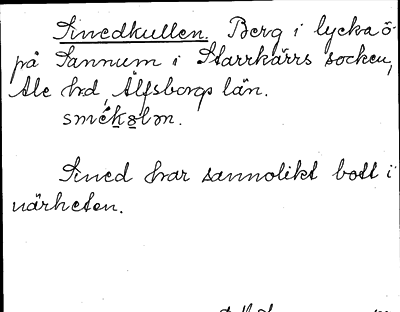 Smedkullen. Berg i lycka ö
på Sannum i Starrkärrs socken,
Ale hd, Älfsborgs län.
smékəlm.
Smed har sannolikt bott i
närheten.